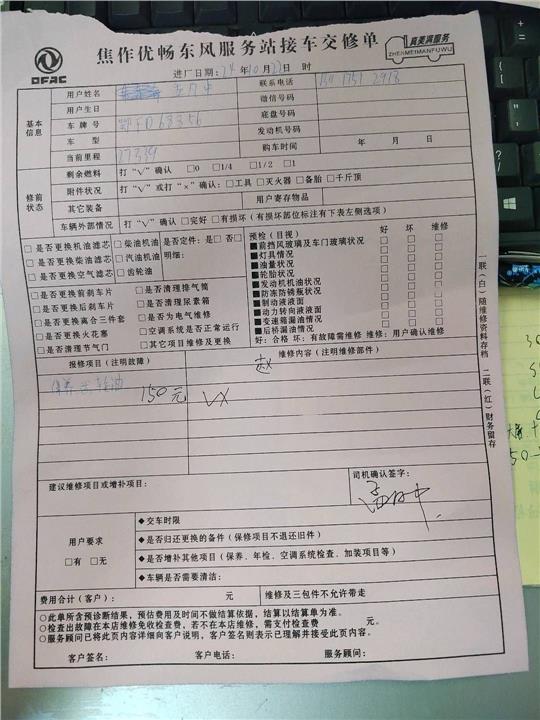 DFAC
焦作优畅东风服务站接车交修单
真美满服务
ZHENMEIMANFUWU
进厂日期:24年10月22日 时
基本信息
用户姓名
联系电话
用户生日
微信号码
车牌号
底盘号码
车型
发动机号码
当前里程
购车时间 年 月 日
修前状态
剩余燃料 打“√”确认 □0 □1/4 □1/2 □1
附件状况 打“√”或打“×”确认:□工具 □灭火器 □备胎 □千斤顶
其它装备
用户寄存物品
车辆外部情况 打“√”确认 □完好 □有损坏(有损坏部位标注有下表左侧选项)
□是否更换机油滤芯 □柴油机油 是否定件:□是 否□
□是否更换柴油滤芯 □汽油机油 明细:
□是否更换空气滤芯 □齿轮油
□是否更换前刹车片 □是否清理排气筒
□是否更换后刹车片 □是否清理尿素箱
□是否更换离合三件套 □是否为电气维修
□是否更换火花塞 □空调系统是否正常运行
□是否清理节气门 □其它项目维修及更换
预检(目视) 好 坏 维修
■前挡风玻璃及车门玻璃状况 □ □ □
■灯具情况 □ □ □
■油量状况 □ □ □
■轮胎状况 □ □ □
■发动机机油状况 □ □ □
■防冻防锈瓶状况 □ □ □
■制动液液面 □ □ □
■动力转向液液面 □ □ □
■变速箱漏油情况 □ □ □
■后桥漏油情况 □ □ □
好:合格 坏:有故障需维修 维修:用户确认维修
一联(白)随维修资料存档 二联(红)财务留存
报修项目(注明故障)
维修内容(注明维修部件)
赵
150元
建议维修项目或增补项目:
司机确认签字:
用户要求
□有 □无
◆交车时限
◆是否归还更换的备件(保修项目不退还旧件)
◆是否增补其他项目(保养、年检、空调系统检查、加装项目等)
◆车辆是否需要清洁:
费用合计(客户): 元
维修及三包件不允许带走
○此单所含预诊断结果,预估费用及时间不做结算依据,结算以结算单为准。
○检查出故障在本店维修免收检查费,若不在本店维修,需支付检查费 元。
○服务顾问已将此页内容详细向客户说明,客户签名则表示已理解并接受此页内容。
客户签名: 客户电话: 服务顾问: